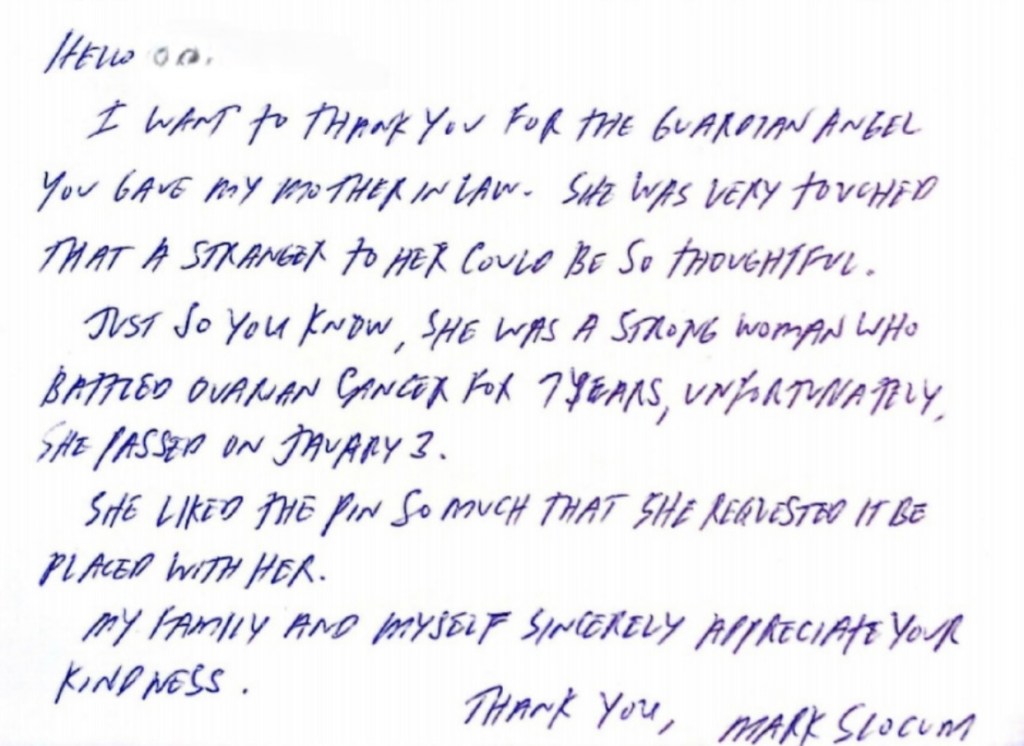 HELLO
I WANT TO THANK YOU FOR THE GUARDIAN ANGEL
YOU GAVE MY MOTHER IN LAW. SHE WAS VERY TOUCHED
THAT A STRANGER TO HER COULD BE SO THOUGHTFUL.
JUST SO YOU KNOW, SHE WAS A STRONG WOMAN WHO
BATTLED OVARIAN CANCER FOR 7 YEARS, UNFORTUNATELY,
SHE PASSED ON JAUARY 3.
SHE LIKED THE PIN SO MUCH THAT SHE REQUESTED IT BE
PLACED WITH HER.
MY FAMILY AND MYSELF SINCERELY APPRECIATE YOUR
KINDNESS.
THANK YOU, MARK SLOCUM